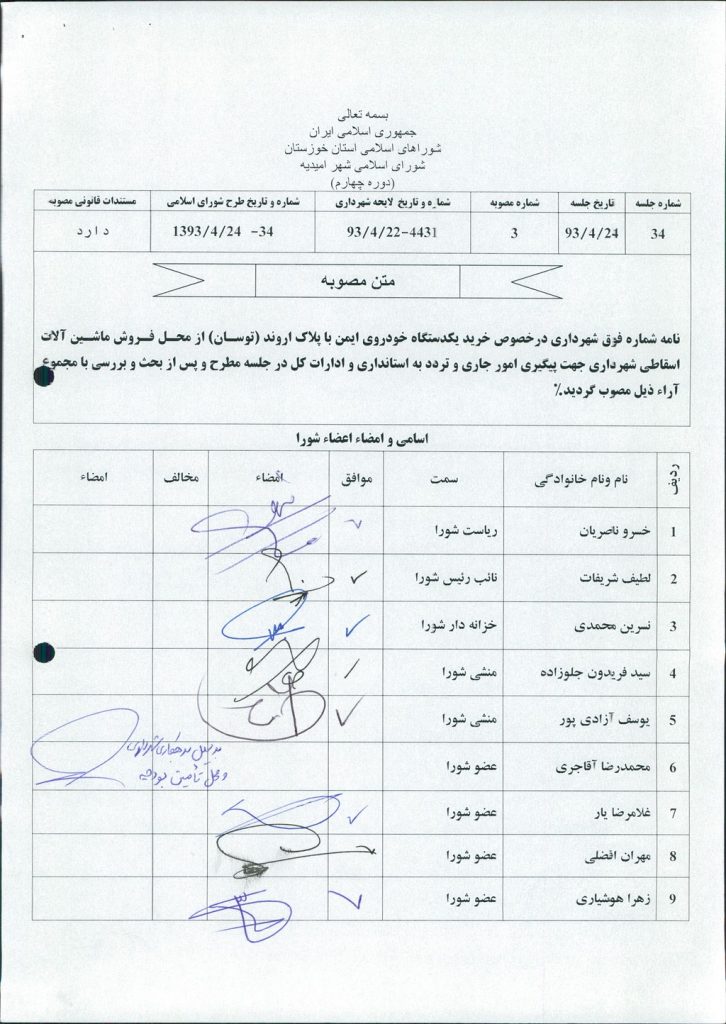 بسمه تعالی
جمهوری اسلامی ایران
شوراهای اسلامی استان خوزستان
شورای اسلامی شهر امیدیه
(دوره چهارم)
شماره جلسه تاریخ جلسه شماره مصوبه شماره و تاریخ لایحه شهرداری شماره و تاریخ طرح شورای اسلامی مستندات قانونی مصوبه
34 93/4/24 3 93/4/22-4431 1393/4/24 -34 دارد
متن مصوبه
نامه شماره فوق شهرداری درخصوص خرید یکدستگاه خودروی ایمن با پلاک اروند (توسان) از محل فروش ماشین آلات
اسقاطی شهرداری جهت پیگیری امور جاری و تردد به استانداری و ادارات کل در جلسه مطرح و پس از بحث و بررسی با مجموع
آراء ذیل مصوب گردید.%
اسامی و امضاء اعضاء شورا
ردیف نام ونام خانوادگی سمت موافق امضاء مخالف امضاء
1 خسرو ناصریان ریاست شورا
2 لطیف شریفات نائب رئیس شورا
3 نسرین محمدی خزانه دار شورا
4 سید فریدون جلوزاده منشی شورا
5 یوسف آزادی پور منشی شورا
6 محمدرضا آقاجری عضو شورا
و محل تأمین بودجه
7 غلامرضا یار عضو شورا
8 مهران افضلی عضو شورا
9 زهرا هوشیاری عضو شورا